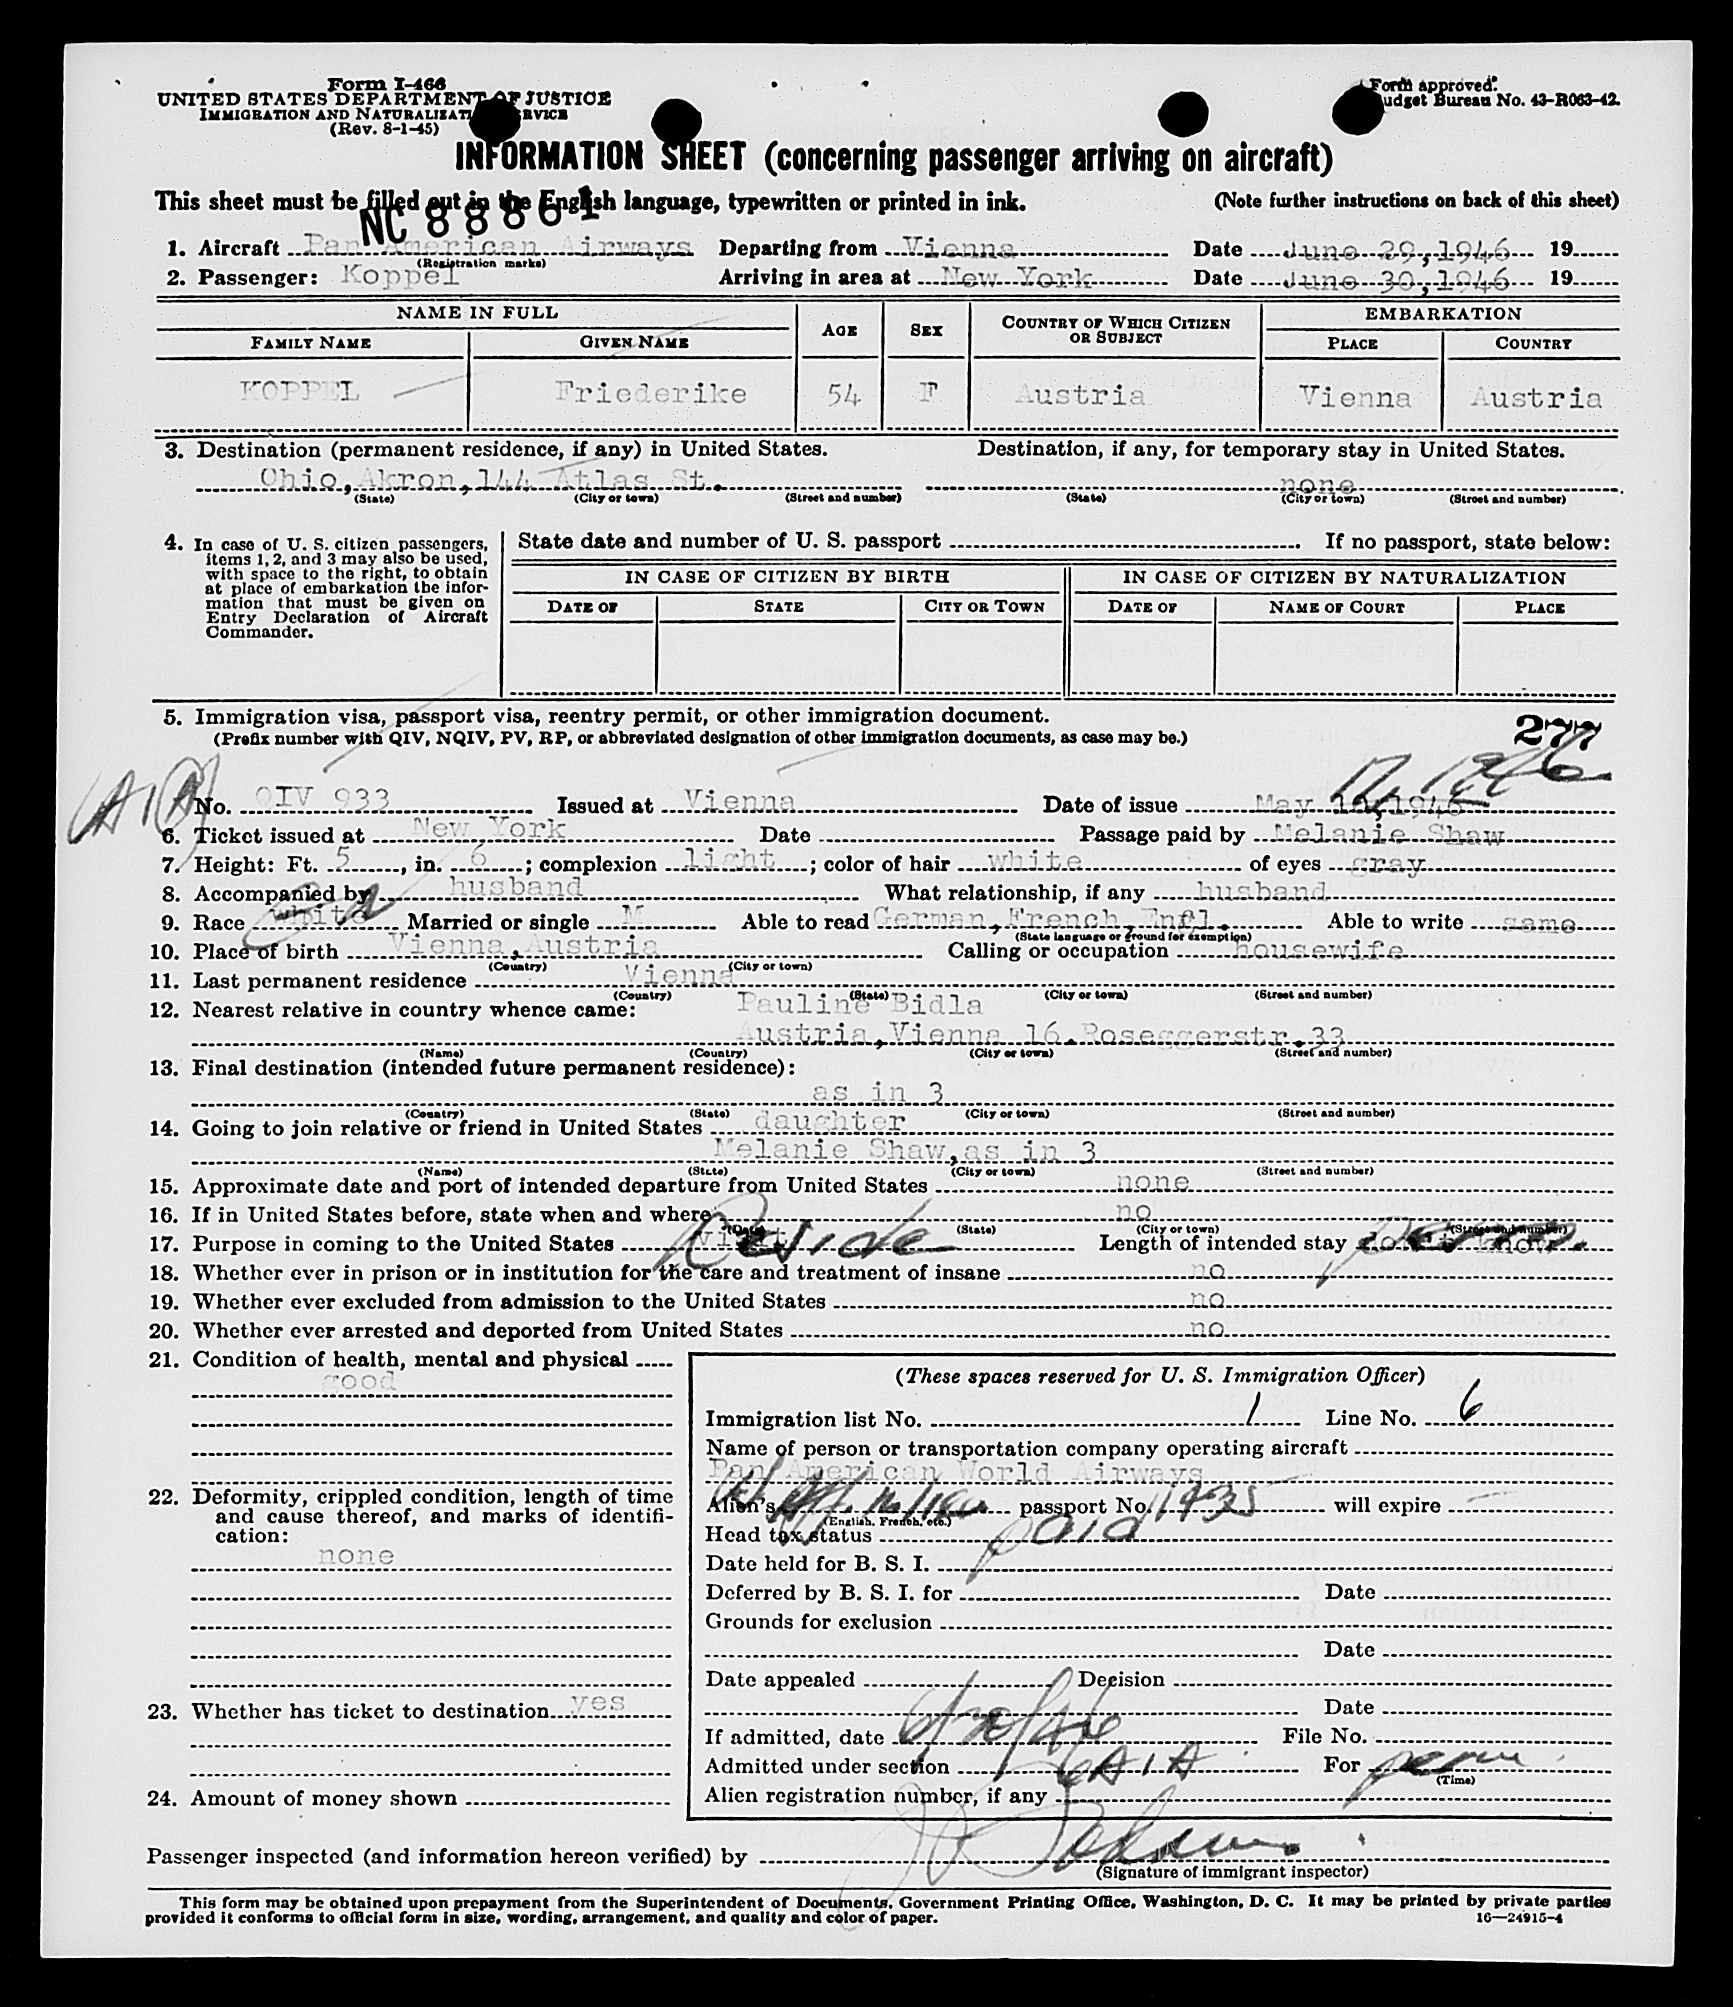 Form I-466
UNITED STATES DEPARTMENT OF JUSTICE
IMMIGRATION AND NATURALIZATION SERVICE
(Rev. 8-1-45)
Form approved.
Budget Bureau No. 43-R063-42.
INFORMATION SHEET (concerning passenger arriving on aircraft)
This sheet must be filled out in the English language, typewritten or printed in ink. (Note further instructions on back of this sheet)
NC 88861
1. Aircraft Pan American Airways Departing from Vienna Date June 29,1946 19
(Registration marks)
2. Passenger: Koppel Arriving in area at New York Date June 30,1946 19
NAME IN FULL AGE SEX COUNTRY OF WHICH CITIZEN OR SUBJECT EMBARKATION
FAMILY NAME GIVEN NAME PLACE COUNTRY
KOPPEL Friederike 54 F Austria Vienna Austria
3. Destination (permanent residence, if any) in United States. Destination, if any, for temporary stay in United States.
Ohio,Akron,144 Atlas St. none
(State) (City or town) (Street and number) (State) (City or town) (Street and number)
4. In case of U. S. citizen passengers, items 1, 2, and 3 may also be used, with space to the right, to obtain at place of embarkation the information that must be given on Entry Declaration of Aircraft Commander.
State date and number of U. S. passport . If no passport, state below:
IN CASE OF CITIZEN BY BIRTH IN CASE OF CITIZEN BY NATURALIZATION
DATE OF STATE CITY OR TOWN DATE OF NAME OF COURT PLACE
5. Immigration visa, passport visa, reentry permit, or other immigration document.
(Prefix number with QIV, NQIV, PV, RP, or abbreviated designation of other immigration documents, as case may be.)
277
No. QIV 933 Issued at Vienna Date of issue May 10,1946
6. Ticket issued at New York Date Passage paid by Melanie Shaw
7. Height: Ft. 5, in. 6; complexion light; color of hair white of eyes gray
8. Accompanied by husband What relationship, if any husband
9. Race white Married or single M Able to read German,French,Engl. Able to write same
(State language or ground for exemption)
10. Place of birth Vienna,Austria Calling or occupation housewife
(Country) (City or town)
11. Last permanent residence Vienna
(Country) (State) (City or town) (Street and number)
12. Nearest relative in country whence came: Pauline Bidla
Austria,Vienna 16.Roseggerstr.33
(Name) (Country) (City or town) (Street and number)
13. Final destination (intended future permanent residence):
as in 3
(Country) (State) (City or town) (Street and number)
14. Going to join relative or friend in United States daughter
Melanie Shaw,as in 3
(Name) (State) (City or town) (Street and number)
15. Approximate date and port of intended departure from United States none
16. If in United States before, state when and where no
(Date) (State) (City or town) (Street and number)
17. Purpose in coming to the United States visit Reside Length of intended stay perm.
18. Whether ever in prison or in institution for the care and treatment of insane no
19. Whether ever excluded from admission to the United States no
20. Whether ever arrested and deported from United States no
21. Condition of health, mental and physical
good
22. Deformity, crippled condition, length of time and cause thereof, and marks of identification:
none
23. Whether has ticket to destination yes
24. Amount of money shown
(These spaces reserved for U. S. Immigration Officer)
Immigration list No. 1 Line No. 6
Name of person or transportation company operating aircraft
Pan American World Airways
Alien's passport No. will expire
(English, French, etc.)
Head tax status paid
Date held for B. S. I.
Deferred by B. S. I. for Date
Grounds for exclusion
Date
Date appealed Decision
Date
If admitted, date 6/30/46 File No.
Admitted under section 6A1A For perm
(Time)
Alien registration number, if any
Passenger inspected (and information hereon verified) by
(Signature of immigrant inspector)
This form may be obtained upon prepayment from the Superintendent of Documents, Government Printing Office, Washington, D. C. It may be printed by private parties
provided it conforms to official form in size, wording, arrangement, and quality and color of paper. 16—24915-4